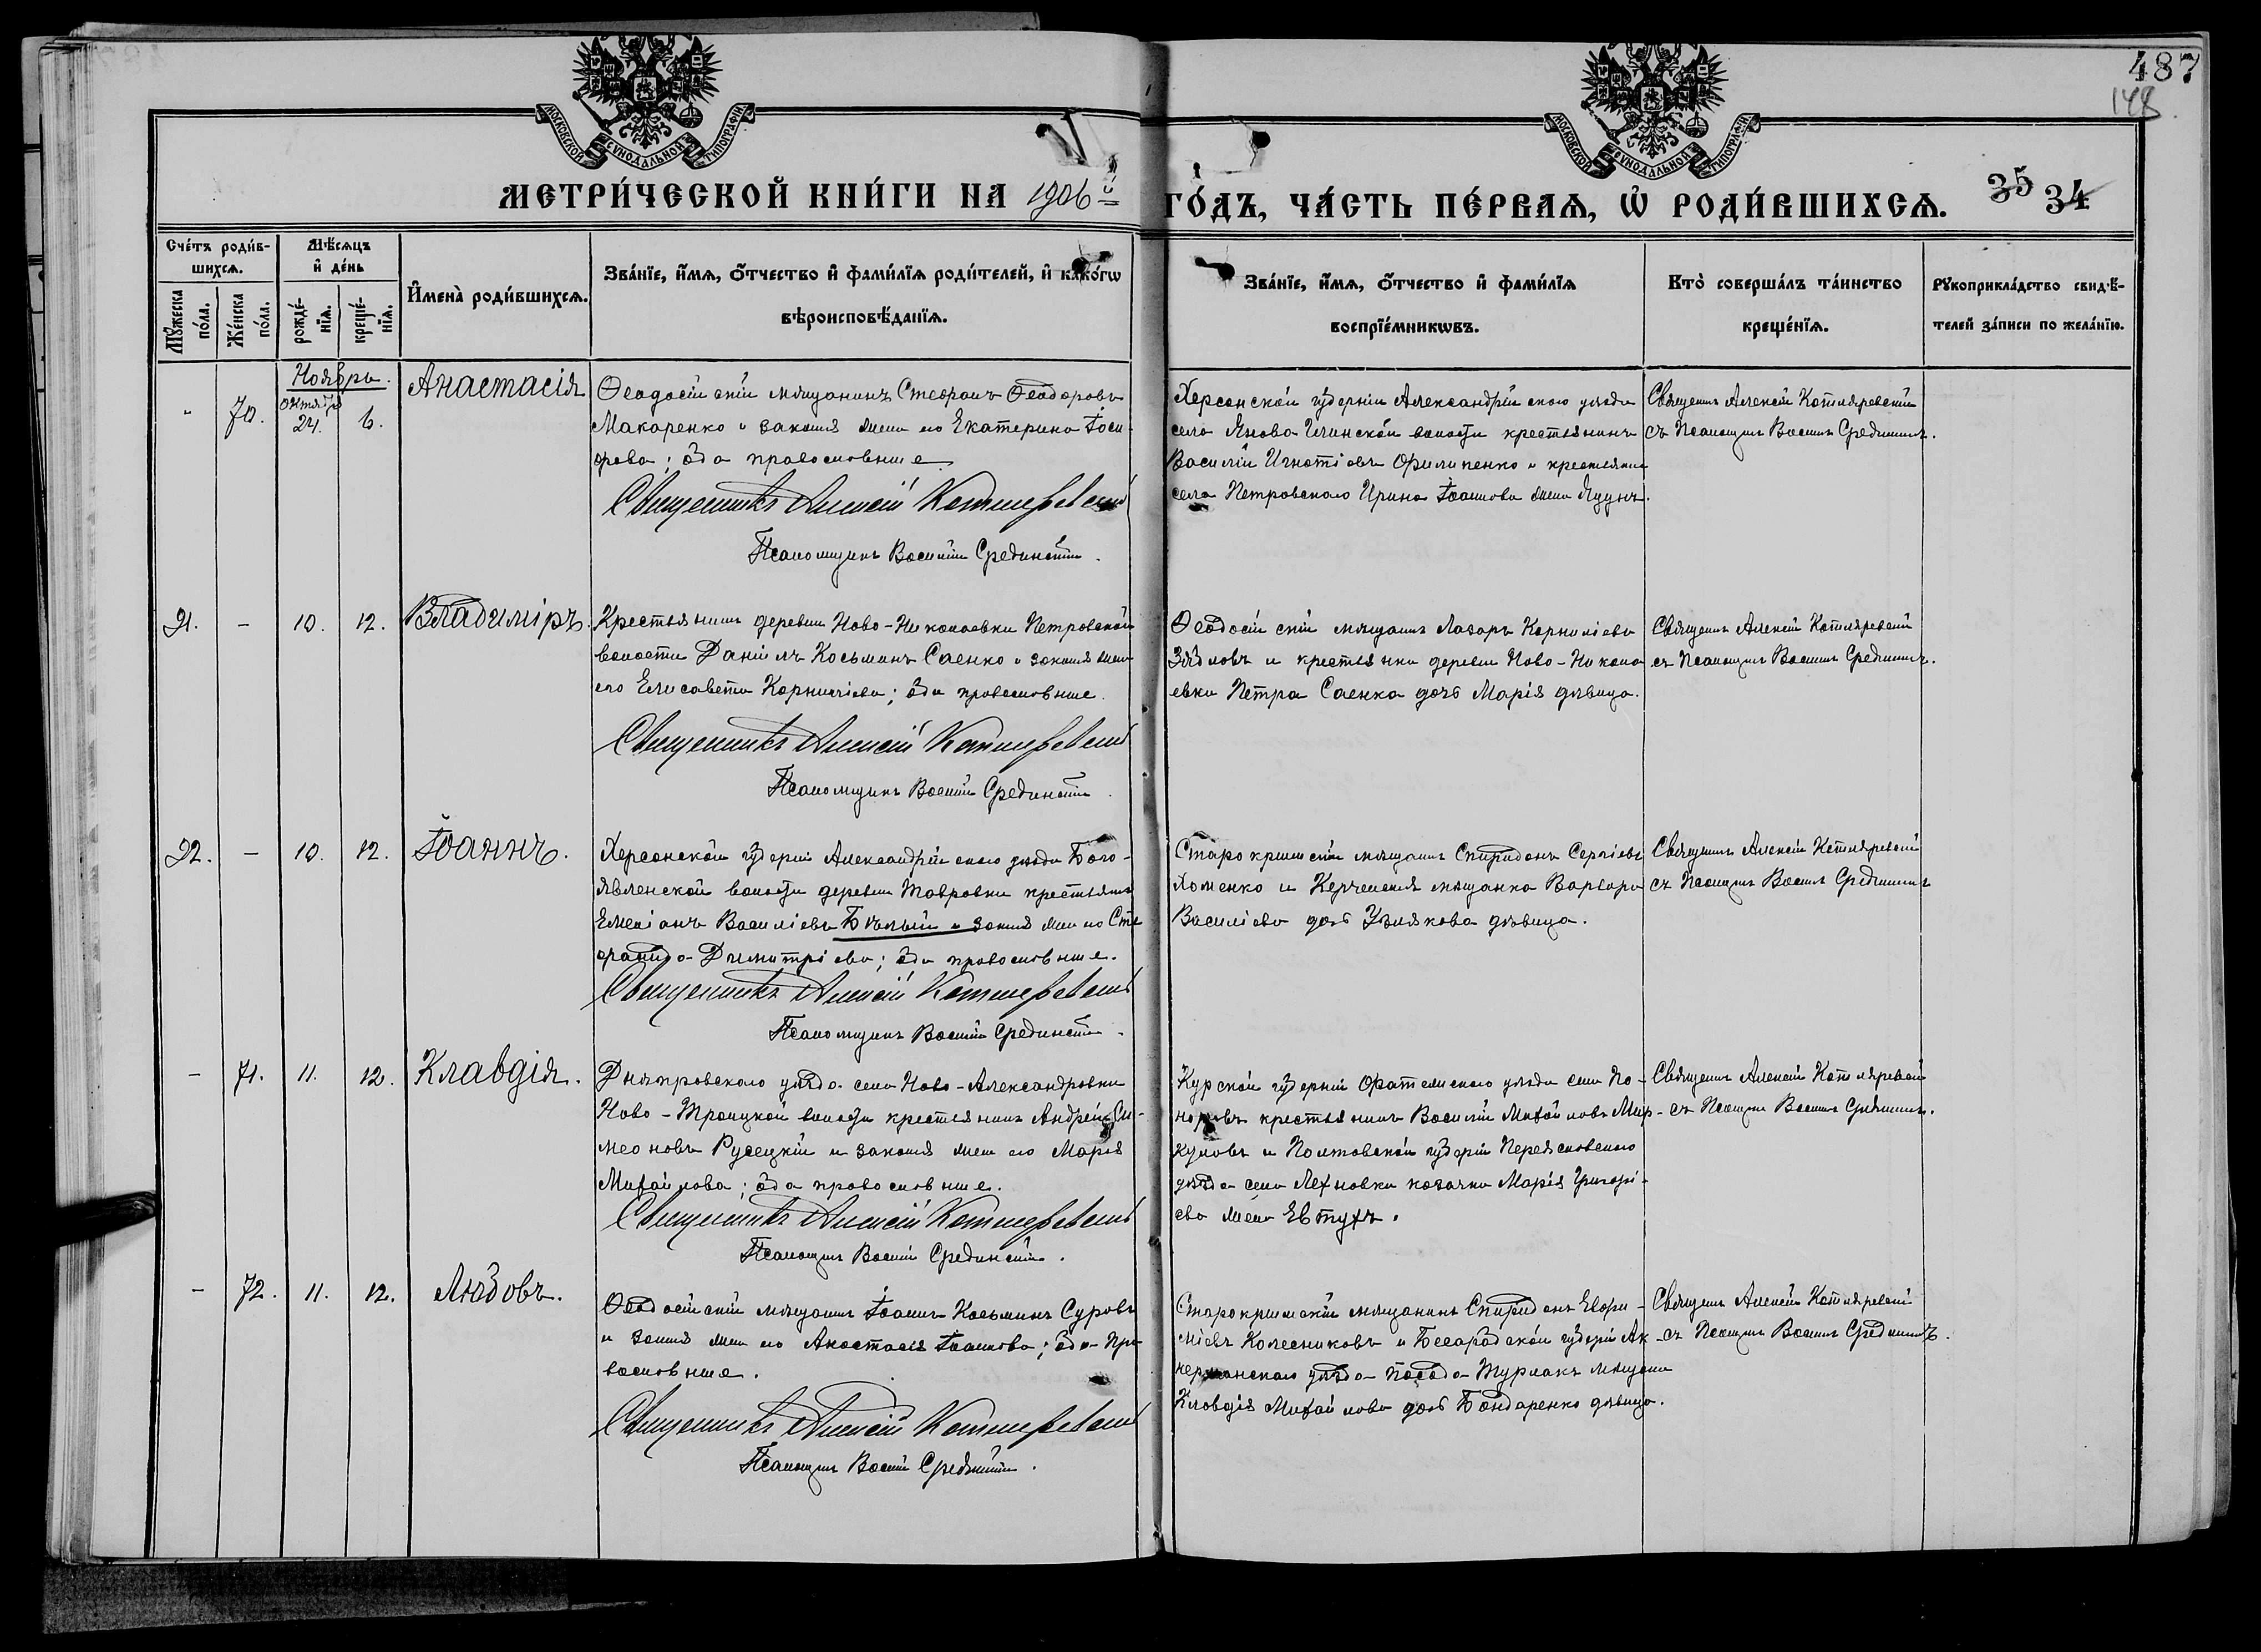 487
148
МОСКОВСКОЙ СѴНОДАЛЬНОЙ ТИПОГРАФІИ
МОСКОВСКОЙ СѴНОДАЛЬНОЙ ТИПОГРАФІИ
МЕТРИ́ЧЕСКОЙ КНИ́ГИ НА 1906й ГО́ДЪ, ЧА́СТЬ ПЕ́РВАѦ, Ѡ҆ РОДИ́ВШИХСѦ. 35 34
Сче́тъ роди́в-
шихсѧ.
Мꙋ́жеска
по́ла.
Же́нска
по́ла.
Мѣ́сѧцъ
и҆ де́нь
рожде́-
нїѧ.
креще́-
нїѧ.
И҆мена̀ роди́вшихсѧ.
Зва́нїе, и҆́мѧ, ѻ҆́тчество и҆ фами́лїѧ роди́телей, и҆ како́гѡ
вѣроисповѣ́данїѧ.
Зва́нїе, и҆́мѧ, ѻ҆́тчество и҆ фами́лїѧ
воспрїе́мникѡвъ.
Кто̀ соверша́лъ та́инство
креще́нїѧ.
Рꙋкоприкла́дство свидѣ́-
телей за́писи по жела́нїю.
Ноябрь.
" 70. Октября 24. 6. Анастасія
Ѳеодосійскій мѣщанинъ Стефанъ Ѳеодоровъ
Макаренко и законная жена его Екатерина Іоси-
фова; оба православные.
Священникъ Алексій Котляревскій
Псаломщикъ Василій Срединскій.
Херсонской губерніи Александрійскаго уѣзда
села Яново волости крестьянинъ
Василій Игнатіевъ Филипенко и крестьянка
села Петровскаго Ирина Іоаннова жена
Священ. Алексій Котляревскій
съ Псаломщик. Васил. Срединскимъ.
21. - 10. 12. Владиміръ.
Крестьянинъ деревни Ново-Николаевки Петровской
волости Даніилъ Косьминъ Саенко и законная жена
его Елисавета Корниліева; оба православные.
Священникъ Алексій Котляревскій
Псаломщикъ Василій Срединскій
Ѳеодосійскій мѣщанинъ Лазарь Корниліевъ
и крестьянина деревни Ново-Никола-
евки Петра Саенка дочь Марія дѣвица.
Священ. Алексій Котляревскій
съ Псаломщик. Васил. Срединскимъ.
22. - 10. 12. Іоаннъ.
Херсонской губерніи Александрійскаго уѣзда Бого-
явленской волости деревни Тавровки крестьянинъ
Емеліанъ Василіевъ Бѣлый и законная жена его Сте-
фанида Димитріева; оба православные.
Священникъ Алексій Котляревскій
Псаломщикъ Василій Срединскій.
Старокрымскій мѣщанинъ Спиридонъ Сергіевъ
Хоменко и Керченская мѣщанка Варвара
Василіева дочь дѣвица.
Священ. Алексій Котляревскій
съ Псаломщик. Васил. Срединскимъ
- 71. 11. 12. Клавдія.
Днѣпровскаго уѣзда села Ново-Александровки
Ново-Троицкой волости крестьянинъ Андрей Си-
меоновъ Русецкій и законная жена его Марія
Михайлова; оба православные.
Священникъ Алексій Котляревскій
Псаломщикъ Василій Срединскій.
Курской губерніи Фатежскаго уѣзда села По-
норовъ крестьянинъ Василій Михайловъ Мир-
куловъ и Полтавской губерніи Переясловскаго
уѣзда села Лехновки казачка Марія Григорі-
ева жена Евтухъ.
Священ. Алексій Котляревскій
съ Псаломщик. Васил. Срединскимъ.
- 72. 11. 12. Любовь.
Ѳеодосійскій мѣщанинъ Іоаннъ Косьминъ Суровъ
и законная жена его Анастасія Іоаннова; оба пра-
вославные.
Священникъ Алексій Котляревскій
Псаломщикъ Василій Срединскій.
Старокрымскій мѣщанинъ Спиридонъ Евфи-
міевъ Колесниковъ и Бессарабской губерніи Ак-
керманскаго уѣзда посада Турлакъ мѣщанка
Клавдія Михайлова дочь Бондаренко дѣвица.
Священ. Алексій Котляревскій
съ Псаломщик. Васил. Срединскимъ.